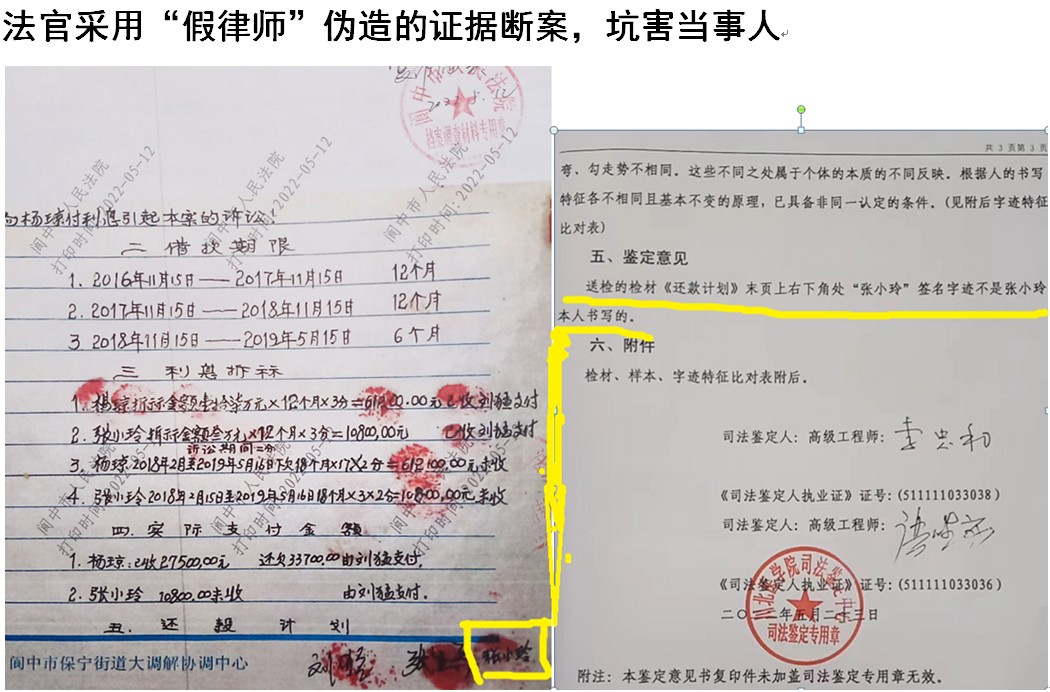 法官采用“假律师”伪造的证据断案，坑害当事人
阆中市人民法院
档案调查材料专用章
阆中市人民法院
打印时间：2022-05-12
向杨琼付利息引起本案的诉讼！
二 借款期限
1. 2016年11月15日——2017年11月15日 12个月
2. 2017年11月15日——2018年11月15日 12个月
3. 2018年11月15日——2019年5月15日 6个月
三 利息折标
2. 张小玲 折标金额叁万元×12个月×3分=10800,00元 已收刘猛支付
诉讼期间二分
4. 张小玲 2018年2月15日至2019年5月16日18个月×3×2分=10800,00元未收
四. 实际支付金额
1. 杨琼:已收27500,00元 还欠33700.00由刘猛支付.
2. 张小玲 10800.00未收 由刘猛支付.
五. 还款计划
阆中市保宁街道大调解协调中心
张小玲
共 3 页第 3 页
弯、勾走势不相同。这些不同之处属于个体的本质的不同反映。根据人的书写
特征各不相同且基本不变的原理，已具备非同一认定的条件。（见附后字迹特征
比对表）
五、鉴定意见
送检的检材《还款计划》末页上右下角处“张小玲”签名字迹不是张小玲
本人书写的。
六、附件
检材、样本、字迹特征比对表附后。
司法鉴定人：高级工程师：
《司法鉴定人执业证》证号：(511111033038)
司法鉴定人：高级工程师：
《司法鉴定人执业证》证号：(511111033036)
二〇二二年五月二十三日
司法鉴定专用章
附注：本鉴定意见书复印件未加盖司法鉴定专用章无效。